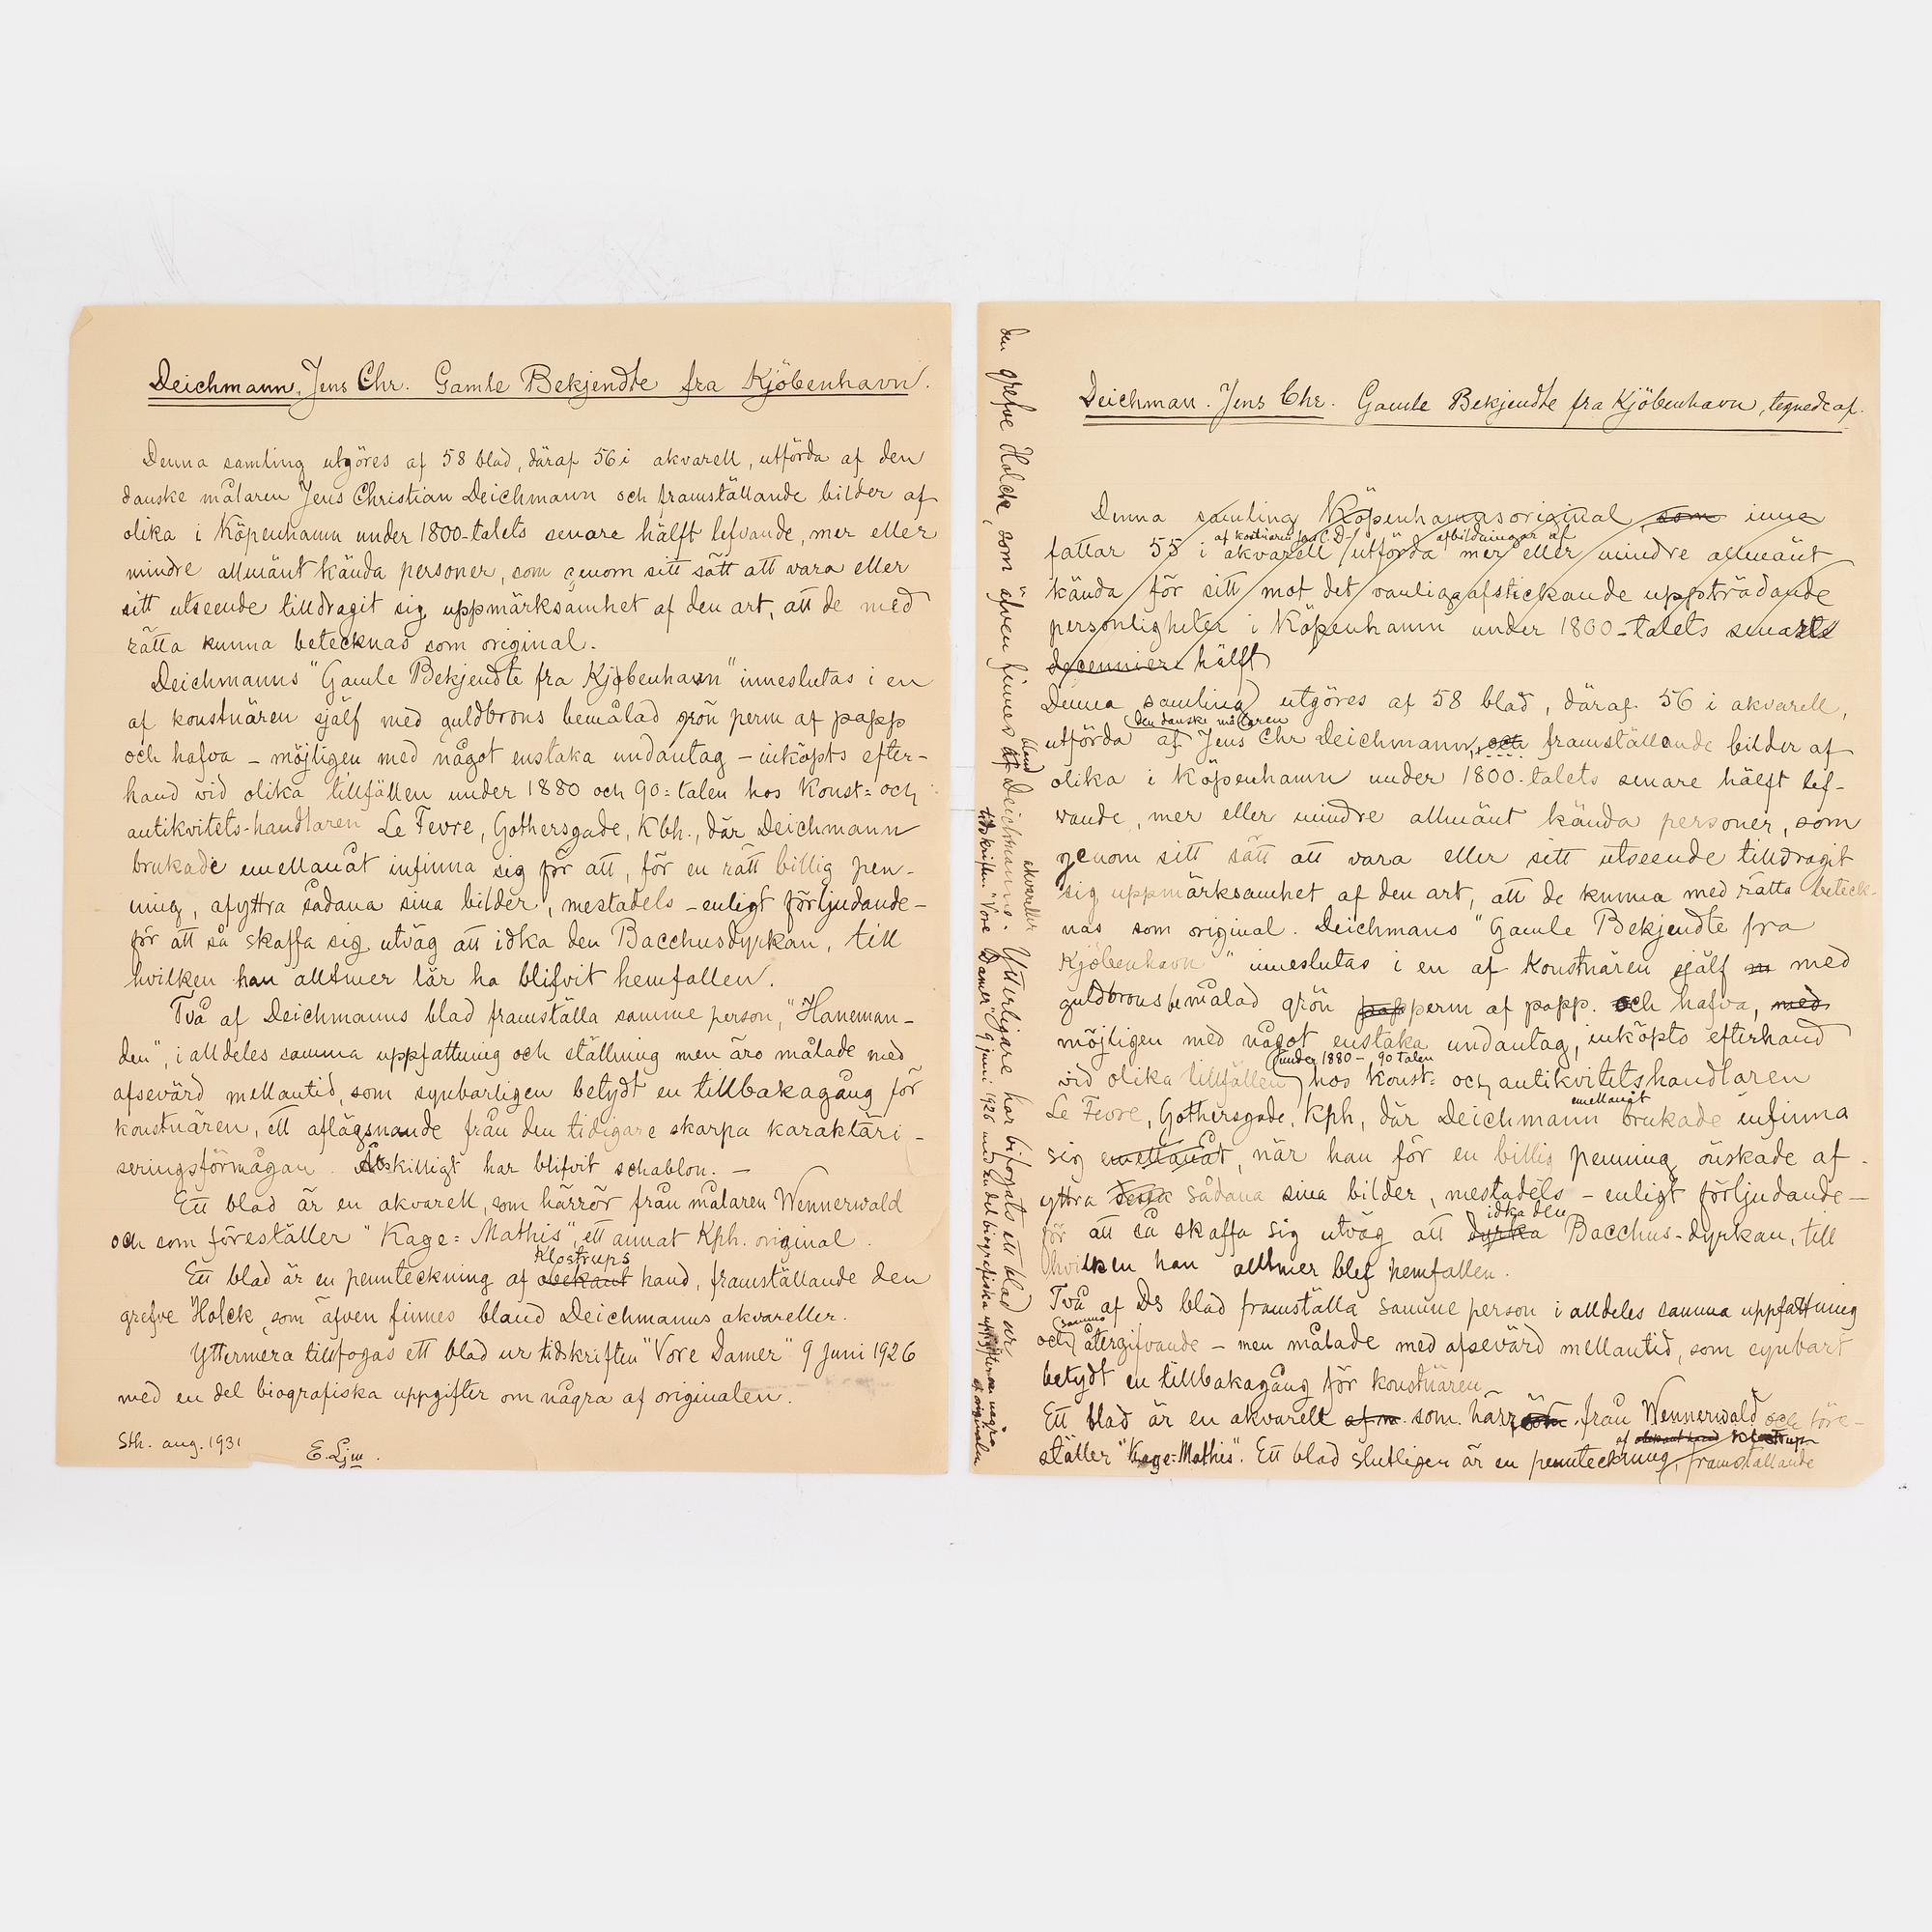 Deichmann, Jens Chr. Gamle Bekjendte fra Kjöbenhavn.
Denna samling utgöres af 58 blad, däraf 56 i akvarell, utförda af den
danske målaren Jens Christian Deichmann och framställande bilder af
olika i Köpenhamn under 1800-talets senare hälft lefvande, mer eller
mindre allmänt kända personer, som genom sitt sätt att vara eller
sitt utseende tilldragit sig uppmärksamhet af den art, att de med
rätta kunna betecknas som original.
Deichmanns "Gamle Bekjendte fra Kjöbenhavn" inneslutas i en
af konstnären själf med guldbrons bemålad grön perm af papp
och hafva - möjligen med något enstaka undantag - inköpts efter-
hand vid olika tillfällen under 1880 och 90=talen hos konst= och
antikvitets-handlaren Le Fevre, Gothersgade, Kbh., där Deichmann
brukade emellanåt infinna sig för att, för en rätt billig pen-
ning, afyttra sådana sina bilder, mestadels - enligt förljudande -
för att så skaffa sig utväg att idka den Bacchusdyrkan, till
hvilken han alltmer lär ha blifvit hemfallen.
Två af Deichmanns blad framställa samme person, "Haneman-
den", i alldeles samma uppfattning och ställning men äro målade med
afsevärd mellantid, som synbarligen betydt en tillbakagång för
konstnären, ett aflägsnande från den tidigare skarpa karaktäri-
seringsförmågan. Åtskilligt har blifvit schablon. -
Ett blad är en akvarell, som härrör från målaren Wennerwald
och som föreställer "Kage=Mathis", ett annat Kph. original.
Klostrups
Ett blad är en pennteckning af obekant hand, framställande den
grefve Holck, som äfven finnes bland Deichmanns akvareller.
Yttermera tillfogas ett blad ur tidskriften "Vore Damer" 9 juni 1926
med en del biografiska uppgifter om några af originalen.
Sth. aug. 1931
E. Ljm.
Deichman. Jens Chr. Gamle Bekjendte fra Kjöbenhavn, tegnede af.
Denna samling Köpenhamnsoriginal, som inne
af konstnären J. C. D. afbildningar af
fattar 55 i akvarell utförda mer eller mindre allmänt
kända för sitt mot det vanliga afstickande uppträdande
personligheter i Köpenhamn under 1800-talets senare
decennier hälft
Denna samling utgöres af 58 blad, däraf 56 i akvarell,
den danske målaren
utförda af Jens Chr Deichmann, och framställande bilder af
olika i Köpenhamn under 1800-talets senare hälft lef-
vande, mer eller mindre allmänt kända personer, som
genom sitt sätt att vara eller sitt utseende tilldragit
sig uppmärksamhet af den art, att de kunna med rätta beteck-
nas som original. Deichmans "Gamle Bekjendte fra
Kjöbenhavn" inneslutas i en af konstnären själf med
guldbrons bemålad grön pap perm af papp. och hafva, med
möjligen med något enstaka undantag, inköpts efterhand
under 1880-, 90 talen
vid olika tillfällen hos konst= och antikvitetshandlaren
emellanåt
Le Fevre, Gothersgade, Kph, där Deichmann brukade infinna
sig emellanåt, när han för en billig penning önskade af-
yttra dessa sådana sina bilder, mestadels - enligt förljudande -
idka den
för att så skaffa sig utväg att dyrka Bacchus-dyrkan, till
hvilken han alltmer blef hemfallen.
Två af Ds blad framställa samme person i alldeles samma uppfattning
samma
och återgifvande - men målade med afsevärd mellantid, som synbart
betydt en tillbakagång för konstnären
Ett blad är en akvarell af m. som härrör från Wennerwald och före-
af obekant hand Klostrup
ställer "Kage=Mathis". Ett blad slutligen är en pennteckning, framställande
den grefve Holck, som äfven finnes af Deichmanns. Ytterligare har bifogats ett blad ur
bland
akvareller
tidskriften "Vore Damer" 9 juni 1926 med en del biografiska uppgifter om några
af originalen